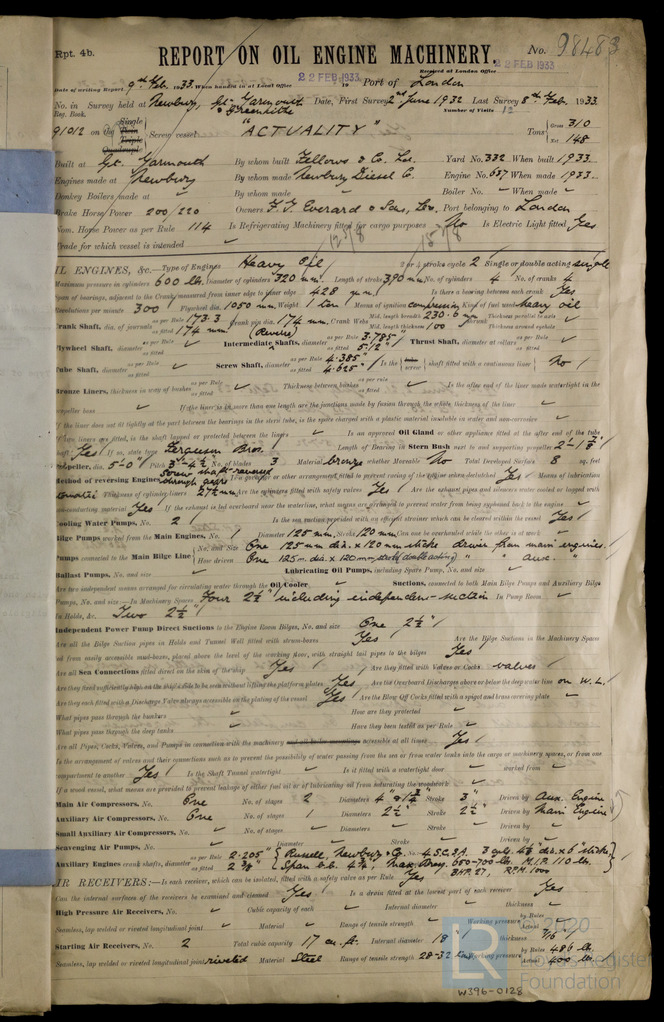 Rpt. 4b.
REPORT ON OIL ENGINE MACHINERY.
No. 98483
22 FEB 1933
Received at London Office 22 FEB 1933
Date of writing Report 9th Feb. 1933. When handed in at Local Office 19 Port of London
No. in Survey held at Newbury, Gt. Yarmouth & Greenhithe Date, First Survey 2nd June 1932 Last Survey 8th Feb. 1933
Reg. Book. Number of Visits 12
91012 on the Single Twin Triple Quadruple Screw vessel "ACTUALITY" Tons Gross 310 Net 148
Built at Gt. Yarmouth By whom built Fellows & Co. Ltd. Yard No. 332 When built 1933
Engines made at Newbury By whom made Newbury Diesel C. Engine No. 637 When made 1933
Donkey Boilers made at ✓ By whom made ✓ Boiler No. ✓ When made ✓
Brake Horse Power 200/220 Owners F. T. Everard & Sons, Ltd. Port belonging to London
Nom. Horse Power as per Rule 114 Is Refrigerating Machinery fitted for cargo purposes No Is Electric Light fitted Yes
Trade for which vessel is intended ✓
OIL ENGINES, &c.—Type of Engines Heavy Oil 2 or 4 stroke cycle 2 Single or double acting single
Maximum pressure in cylinders 600 lb. Diameter of cylinders 320 mm. Length of stroke 390 mm. No. of cylinders 4 No. of cranks 4
Span of bearings, adjacent to the Crank, measured from inner edge to inner edge 428 mm. Is there a bearing between each crank Yes
Revolutions per minute 300 Flywheel dia. 1050 mm. Weight 1 ton Means of ignition compression Kind of fuel used heavy oil
Crank Shaft, dia. of journals as per Rule 173.3 as fitted 174 mm. Crank pin dia. 174 mm. Crank Webs Mid. length breadth 230.6 mm Mid. length thickness 100
Flywheel Shaft, diameter as per Rule as fitted Intermediate Shafts, diameter as per Rule 3.785" as fitted 5 1/2" Thrust Shaft, diameter at collars as per Rule as fitted
Tube Shaft, diameter as per Rule as fitted Screw Shaft, diameter as per Rule 4.385" as fitted 4.625" Is the shaft fitted with a continuous liner No
Bronze Liners, thickness in way of bushes as per Rule Thickness between bushes as per Rule Is the after end of the liner made watertight in the
propeller boss ✓ If the liner is in more than one length are the junctions made by fusion through the whole thickness of the liner ✓
If the liner does not fit tightly at the part between the bearings in the stern tube, is the space charged with a plastic material insoluble in water and non-corrosive ✓
If two liners are fitted, is the shaft lapped or protected between the liners ✓ Is an approved Oil Gland or other appliance fitted at the after end of the tube
shaft Yes If so, state type Ferguson Bros. Length of Bearing in Stern Bush next to and supporting propeller
Propeller, dia. 5'-0" Pitch 3'-4 1/2" No. of blades 3 Material bronze whether Moveable No Total Developed Surface 8 sq. feet
Method of reversing Engines through gears Yes Means of lubrication
Thickness of cylinder liners 27 1/2 mm. Are the cylinders fitted with safety valves Yes Are the exhaust pipes and silencers water cooled or lagged with
non-conducting material Yes If the exhaust is led overboard near the waterline, what means are arranged to prevent water from being syphoned back to the engine ✓
Cooling Water Pumps, No. 2 Is the sea suction provided with an efficient strainer which can be cleared within the vessel Yes
Bilge Pumps worked from the Main Engines, No. 1 Diameter 125 mm. Stroke 120 mm Can one be overhauled while the other is at work ✓
Pumps connected to the Main Bilge Line No. and Size One 125 mm dia. x 120 mm stroke driven from main engines.
How driven One 125 m. dia. x 120 mm stroke (double acting) " aux. "
Ballast Pumps, No. and size ✓ Lubricating Oil Pumps, including Spare Pump, No. and size ✓
Are two independent means arranged for circulating water through the Oil Cooler ✓ Suctions, connected to both Main Bilge Pumps and Auxiliary Bilge
Pumps, No. and size:—In Machinery Spaces Four 2 1/2" including independent suction In Pump Room ✓
In Holds, &c. Two 2 1/2"
Independent Power Pump Direct Suctions to the Engine Room Bilges, No. and size One 2 1/2"
Are all the Bilge Suction pipes in Holds and Tunnel Well fitted with strum-boxes Yes Are the Bilge Suctions in the Machinery Spaces
led from easily accessible mud-boxes, placed above the level of the working floor, with straight tail pipes to the bilges Yes
Are all Sea Connections fitted direct on the skin of the ship Yes Are they fitted with Valves or Cocks valves
Are they fixed sufficiently high on the ship's side to be seen without lifting the platform plates Yes Are the Overboard Discharges above or below the deep water line on W.L.
Are they each fitted with a Discharge Valve always accessible on the plating of the vessel Yes Are the Blow Off Cocks fitted with a spigot and brass covering plate ✓
What pipes pass through the bunkers ✓ How are they protected ✓
What pipes pass through the deep tanks ✓ Have they been tested as per Rule ✓
Are all Pipes, Cocks, Valves, and Pumps in connection with the machinery and all boiler mountings accessible at all times Yes
Is the arrangement of valves and their connections such as to prevent the possibility of water passing from the sea or from water ballast tanks into the cargo or machinery spaces, or from one
compartment to another Yes Is the Shaft Tunnel watertight ✓ Is it fitted with a watertight door ✓ worked from ✓
If a wood vessel, what means are provided to prevent leakage of either fuel oil or lubricating oil from saturating the woodwork ✓
Main Air Compressors, No. One No. of stages 2 Diameters 4" & 1 3/4" Stroke 3" Driven by Aux. Engine
Auxiliary Air Compressors, No. One No. of stages 1 Diameters 2 1/2" Stroke 2 1/2" Driven by Main Engine
Small Auxiliary Air Compressors, No. ✓ No. of stages ✓ Diameters ✓ Stroke ✓ Driven by ✓
Scavenging Air Pumps, No. ✓ Diameter ✓ Stroke ✓ Driven by ✓
Auxiliary Engines crank shafts, diameter as per Rule 2.205" as fitted 2 3/8" Russell, Newbury & Co. No. 4 S.C.S.A. 3 cyls. 4 1/2 dia. x 6" stroke.
Span b.b. 4 3/4", max. press. 650-700 lb. M.I.P. 110 lb. B.H.P. 27, R.P.M. 1000
AIR RECEIVERS:—Is each receiver, which can be isolated, fitted with a safety valve as per Rule Yes
Can the internal surfaces of the receivers be examined and cleaned Yes Is a drain fitted at the lowest part of each receiver Yes
High Pressure Air Receivers, No. ✓ Cubic capacity of each ✓ Internal diameter ✓ thickness ✓
Seamless, lap welded or riveted longitudinal joint ✓ Material ✓ Range of tensile strength ✓ Working pressure by Rules Actual
Starting Air Receivers, No. 2 Total cubic capacity 17 cu. ft. Internal diameter 18" thickness 7/16"
Seamless, lap welded or riveted longitudinal joint riveted Material Steel Range of tensile strength 28-32 tons Working pressure by Rules 486 lb. Actual 400 lb.
LR
© 2020
Lloyd's Register
Foundation
W396-0128